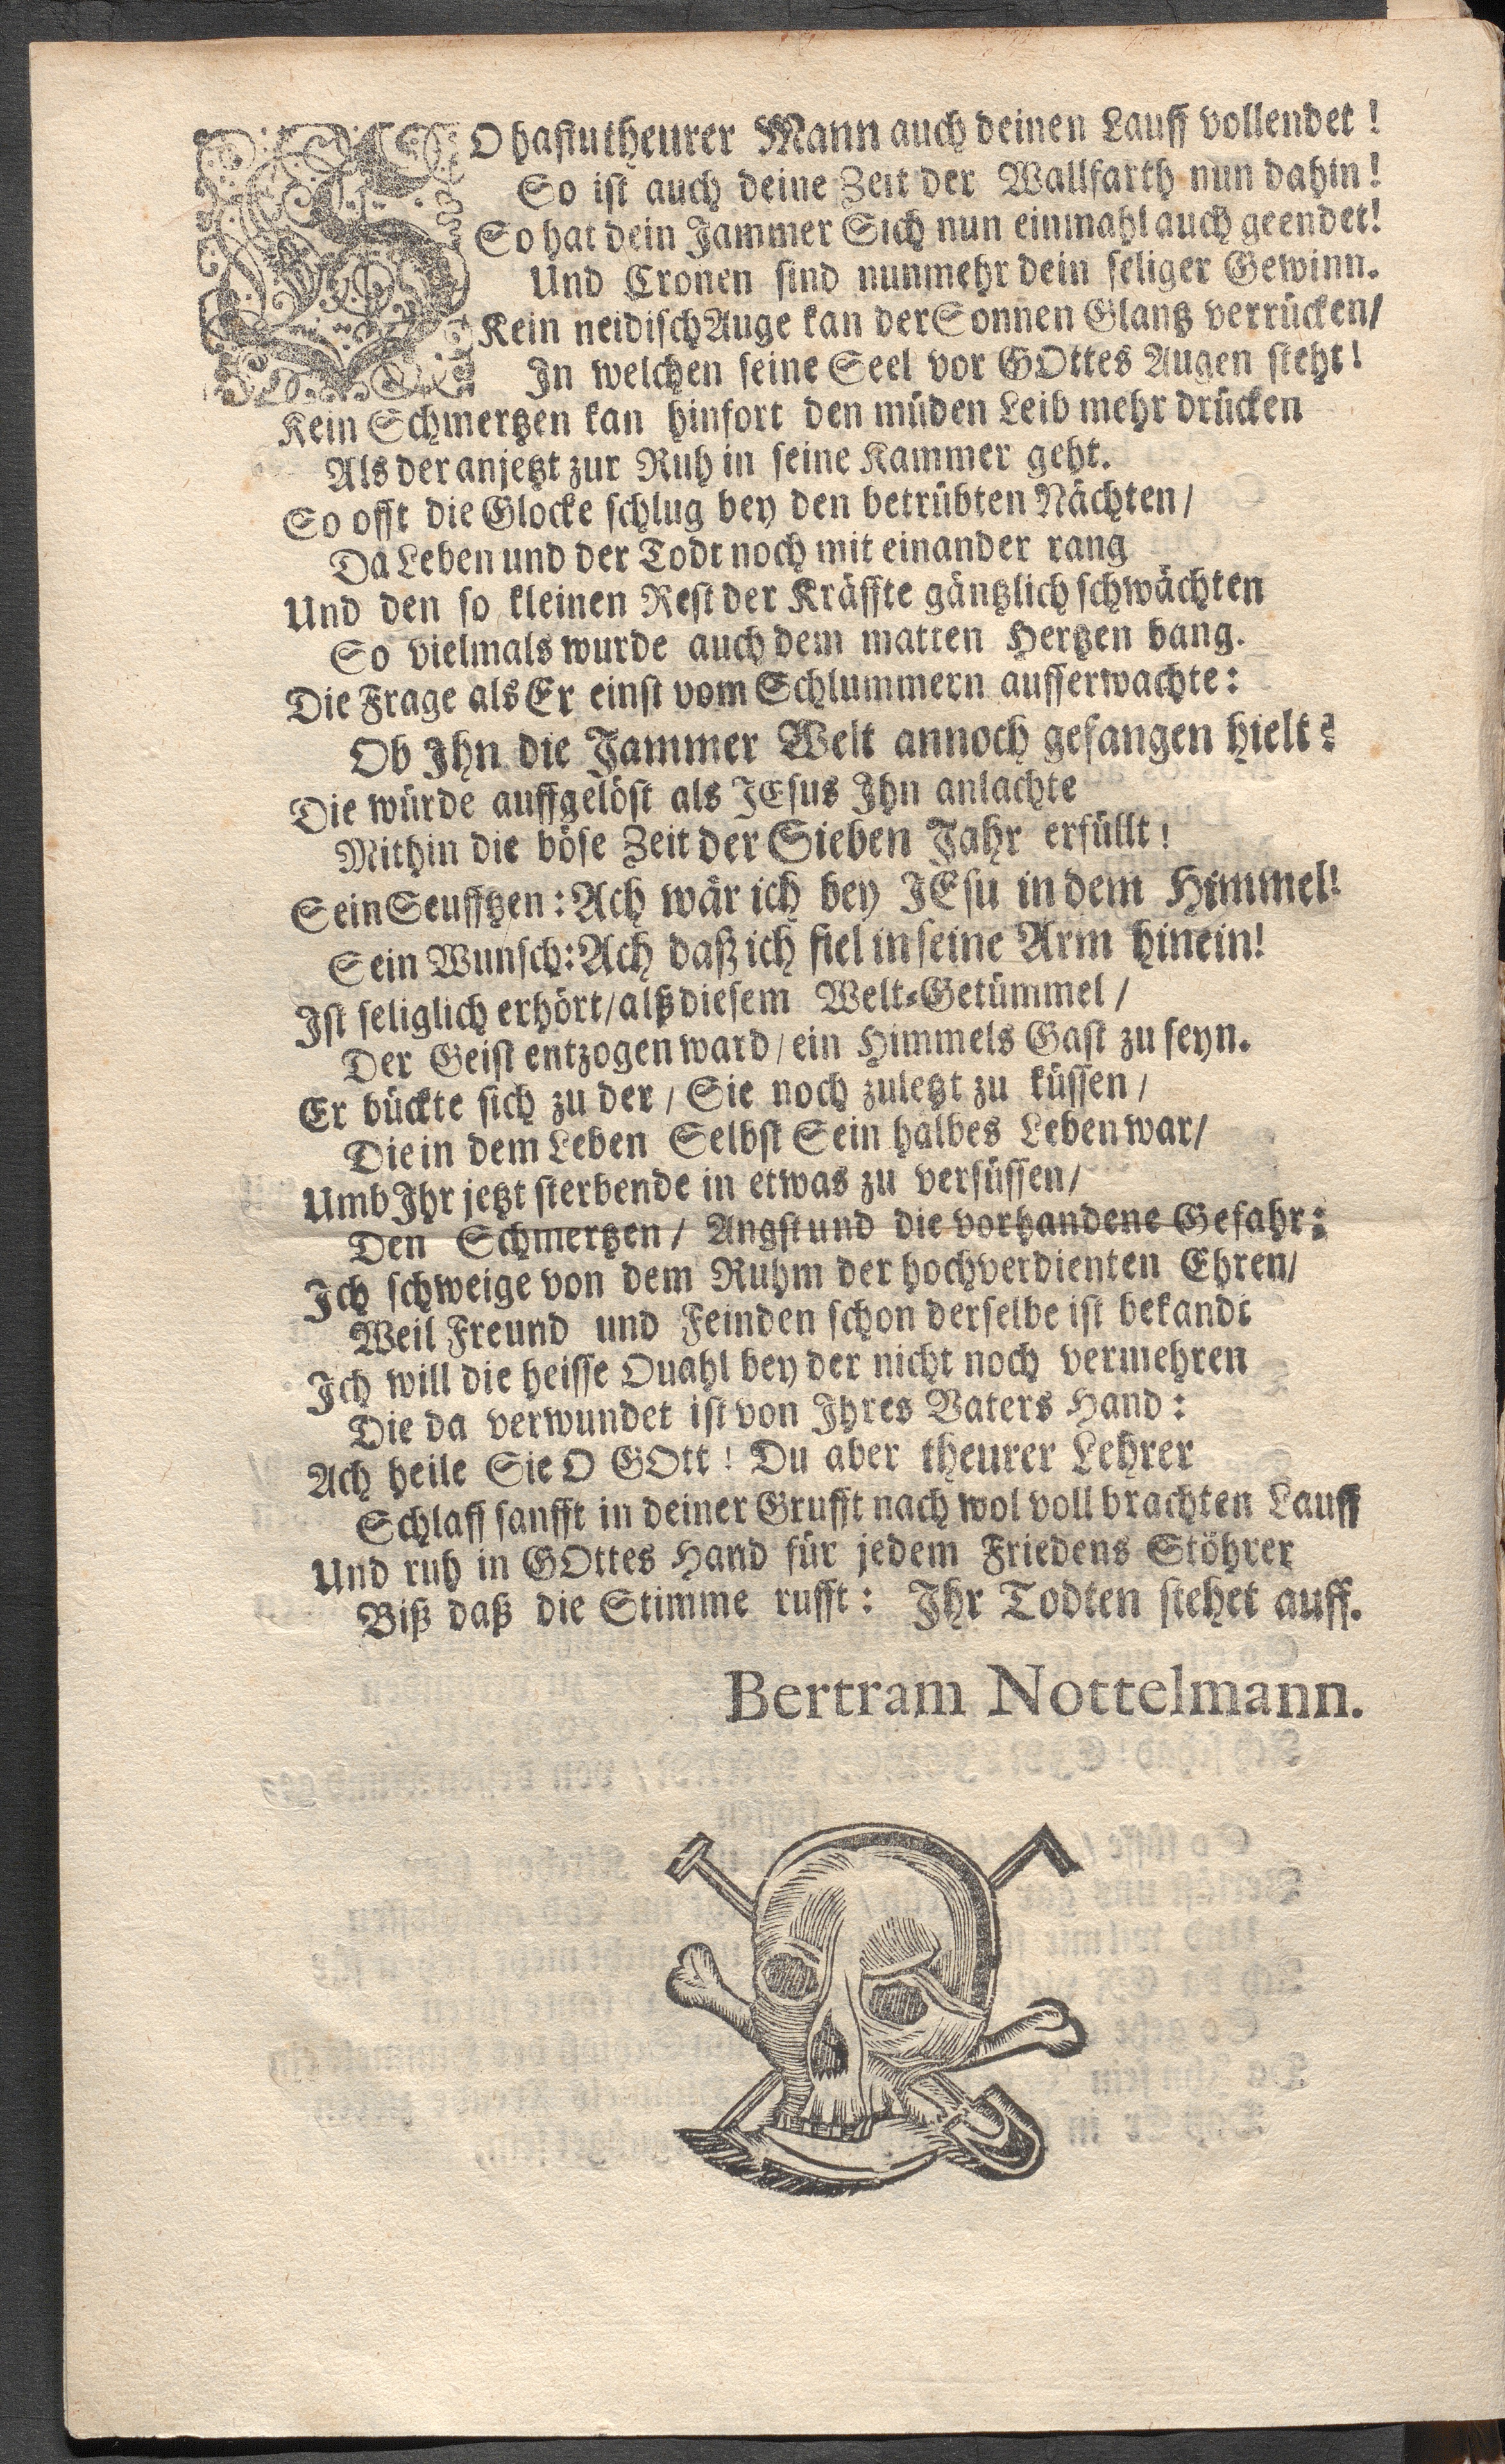 SO hastutheurer Mann auch deinen Lauff vollendet!
So ist auch deine Zeit der Wallfarth nun dahin!
So hat dein Jammer Sich nun einmahl auch geendet!
Und Cronen sind nunmehr dein seliger Gewinn.
Kein neidisch Auge kan der Sonnen Glantz verrücken/
In welchen seine Seel vor GOttes Augen steht!
Kein Schmertzen kan hinfort den müden Leib mehr drücken
Als der anjetzt zur Ruh in seine Kammer geht.
So offt die Glocke schlug bey den betrübten Nächten/
Da Leben und der Todt noch mit einander rang
Und den so kleinen Rest der Kräffte gäntzlich schwächten
So vielmals wurde auch dem matten Hertzen bang.
Die Frage als Er einst vom Schlummern aufferwachte:
Ob Ihn die Jammer Welt annoch gefangen hielt?
Die würde auffgelöst als JEsus Ihn anlachte
Mithin die böse Zeit der Sieben Jahr erfüllt!
Sein Seufftzen: Ach wär ich bey JEsu in dem Himmel!
Sein Wunsch: Ach daß ich fiel in seine Arm hinein!
Ist seliglich erhört/ alß diesem Welt-Getümmel/
Der Geist entzogen ward/ ein Himmels Gast zu seyn.
Er bückte sich zu der/ Sie noch zuletzt zu küssen/
Die in dem Leben Selbst Sein halbes Leben war/
Umb Ihr jetzt sterbende in etwas zu versüssen/
Den Schmertzen/ Angst und die vorhandene Gefahr:
Ich schweige von dem Ruhm der hochverdienten Ehren/
Weil Freund und Feinden schon derselbe ist bekandt
Ich will die heisse Quahl bey der nicht noch vermehren
Die da verwundet ist von Ihres Vaters Hand:
Ach heile Sie O GOtt! Du aber theurer Lehrer
Schlaff sanfft in deiner Grufft nach wol voll brachten Lauff
Und ruh in GOttes Hand für jedem Friedens Stöhrer
Biß daß die Stimme rufft: Ihr Todten stehet auff.
Bertram Nottelmann.